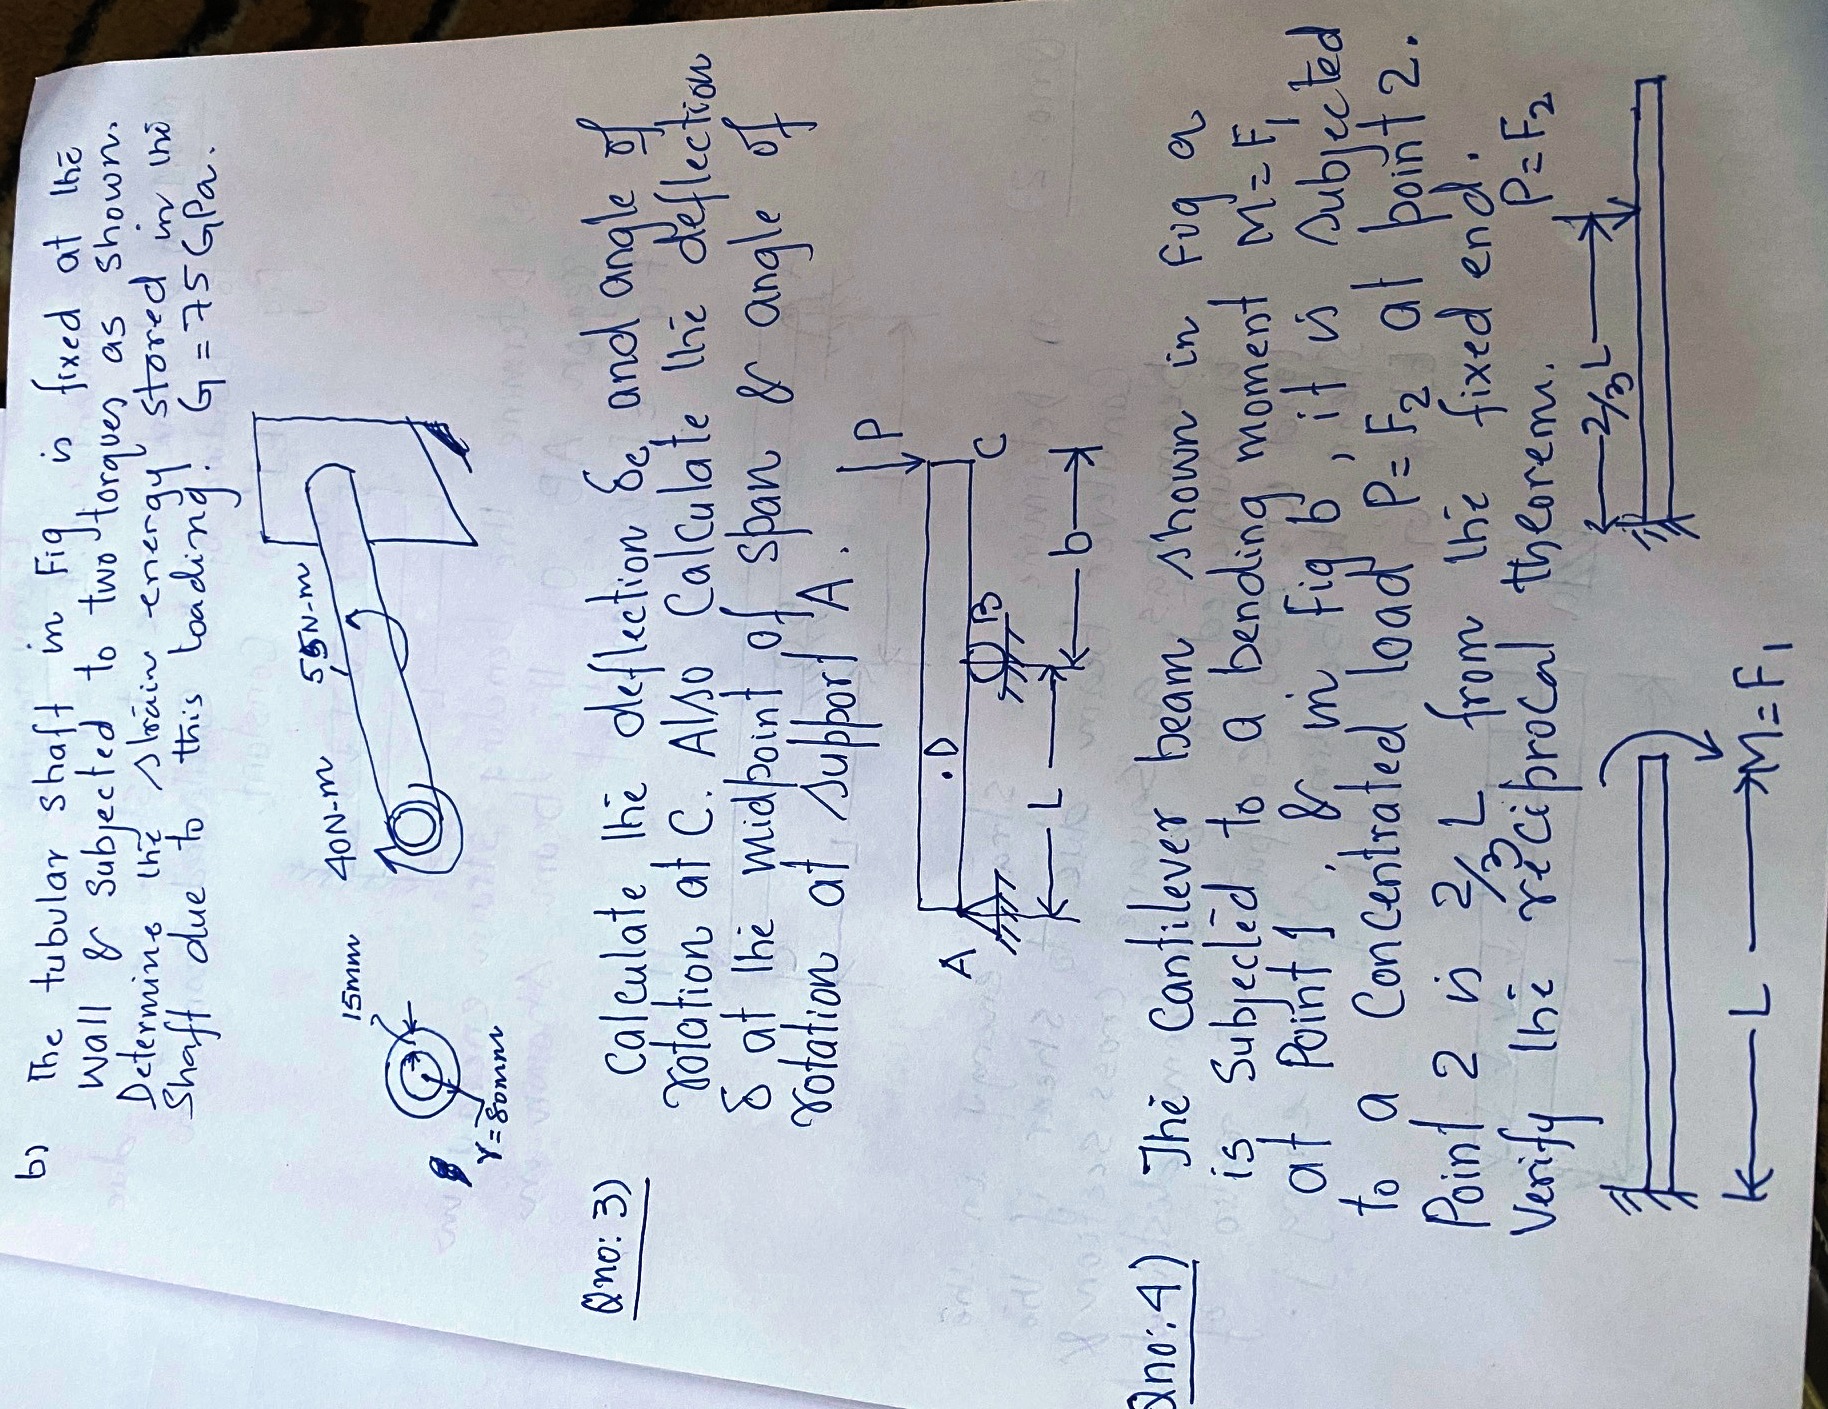 b) The tubular shaft in Fig is fixed at the
wall & Subjected to two torques as shown.
Determine the strain energy stored in the
Shaft due to this loading. G = 75 GPa.
40N-m
55N-m
15mm
r=80mm
Qno: 3)
Calculate the deflection δc and angle of
rotation at C. Also Calculate the deflection
δ at the midpoint of span & angle of
rotation at support A.
P
A
.D
B
C
L
b
Qno: 4)
The Cantilever beam shown in Fig a
is Subjected to a bending moment M=F1
at Point 1, & in Fig b, it is subjected
to a Concentrated load P=F2 at point 2.
Point 2 is 2/3 L from the fixed end.
Verify the reciprocal theorem.
P=F2
2/3 L
M=F1
L